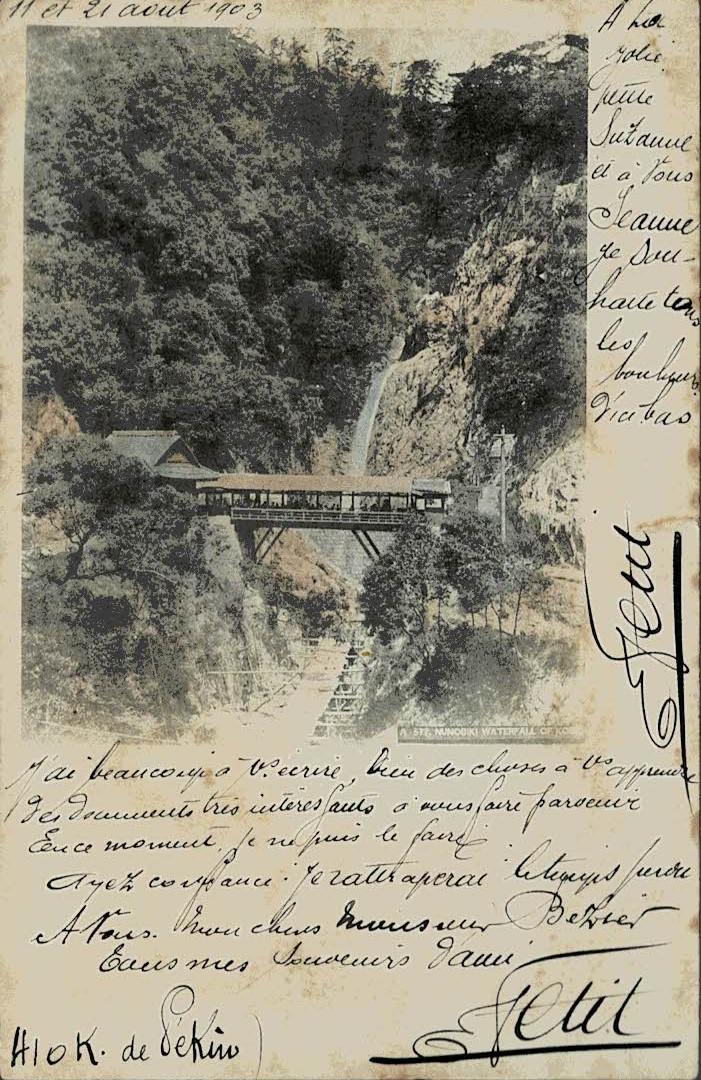 11 et 21 août 1903
A La
jolie
petite
Suzanne
et à Vous
Jeanne
Je Sou-
haite tous
les
bonheurs
d'ici bas
Petit
A 577. NUNOBIKI WATERFALL OF KOBE
J'ai beaucoup à Vs écrire, bien des choses à Vs apprendre
des documents très intéressants à vous faire parvenir
En ce moment, je ne puis le faire
Ayez confiance. Je rattraperai le temps perdu
A Vous. Mon cher Monsieur Bezier
Tous mes Souvenirs d'ami
Petit
410 K. de Pékin)